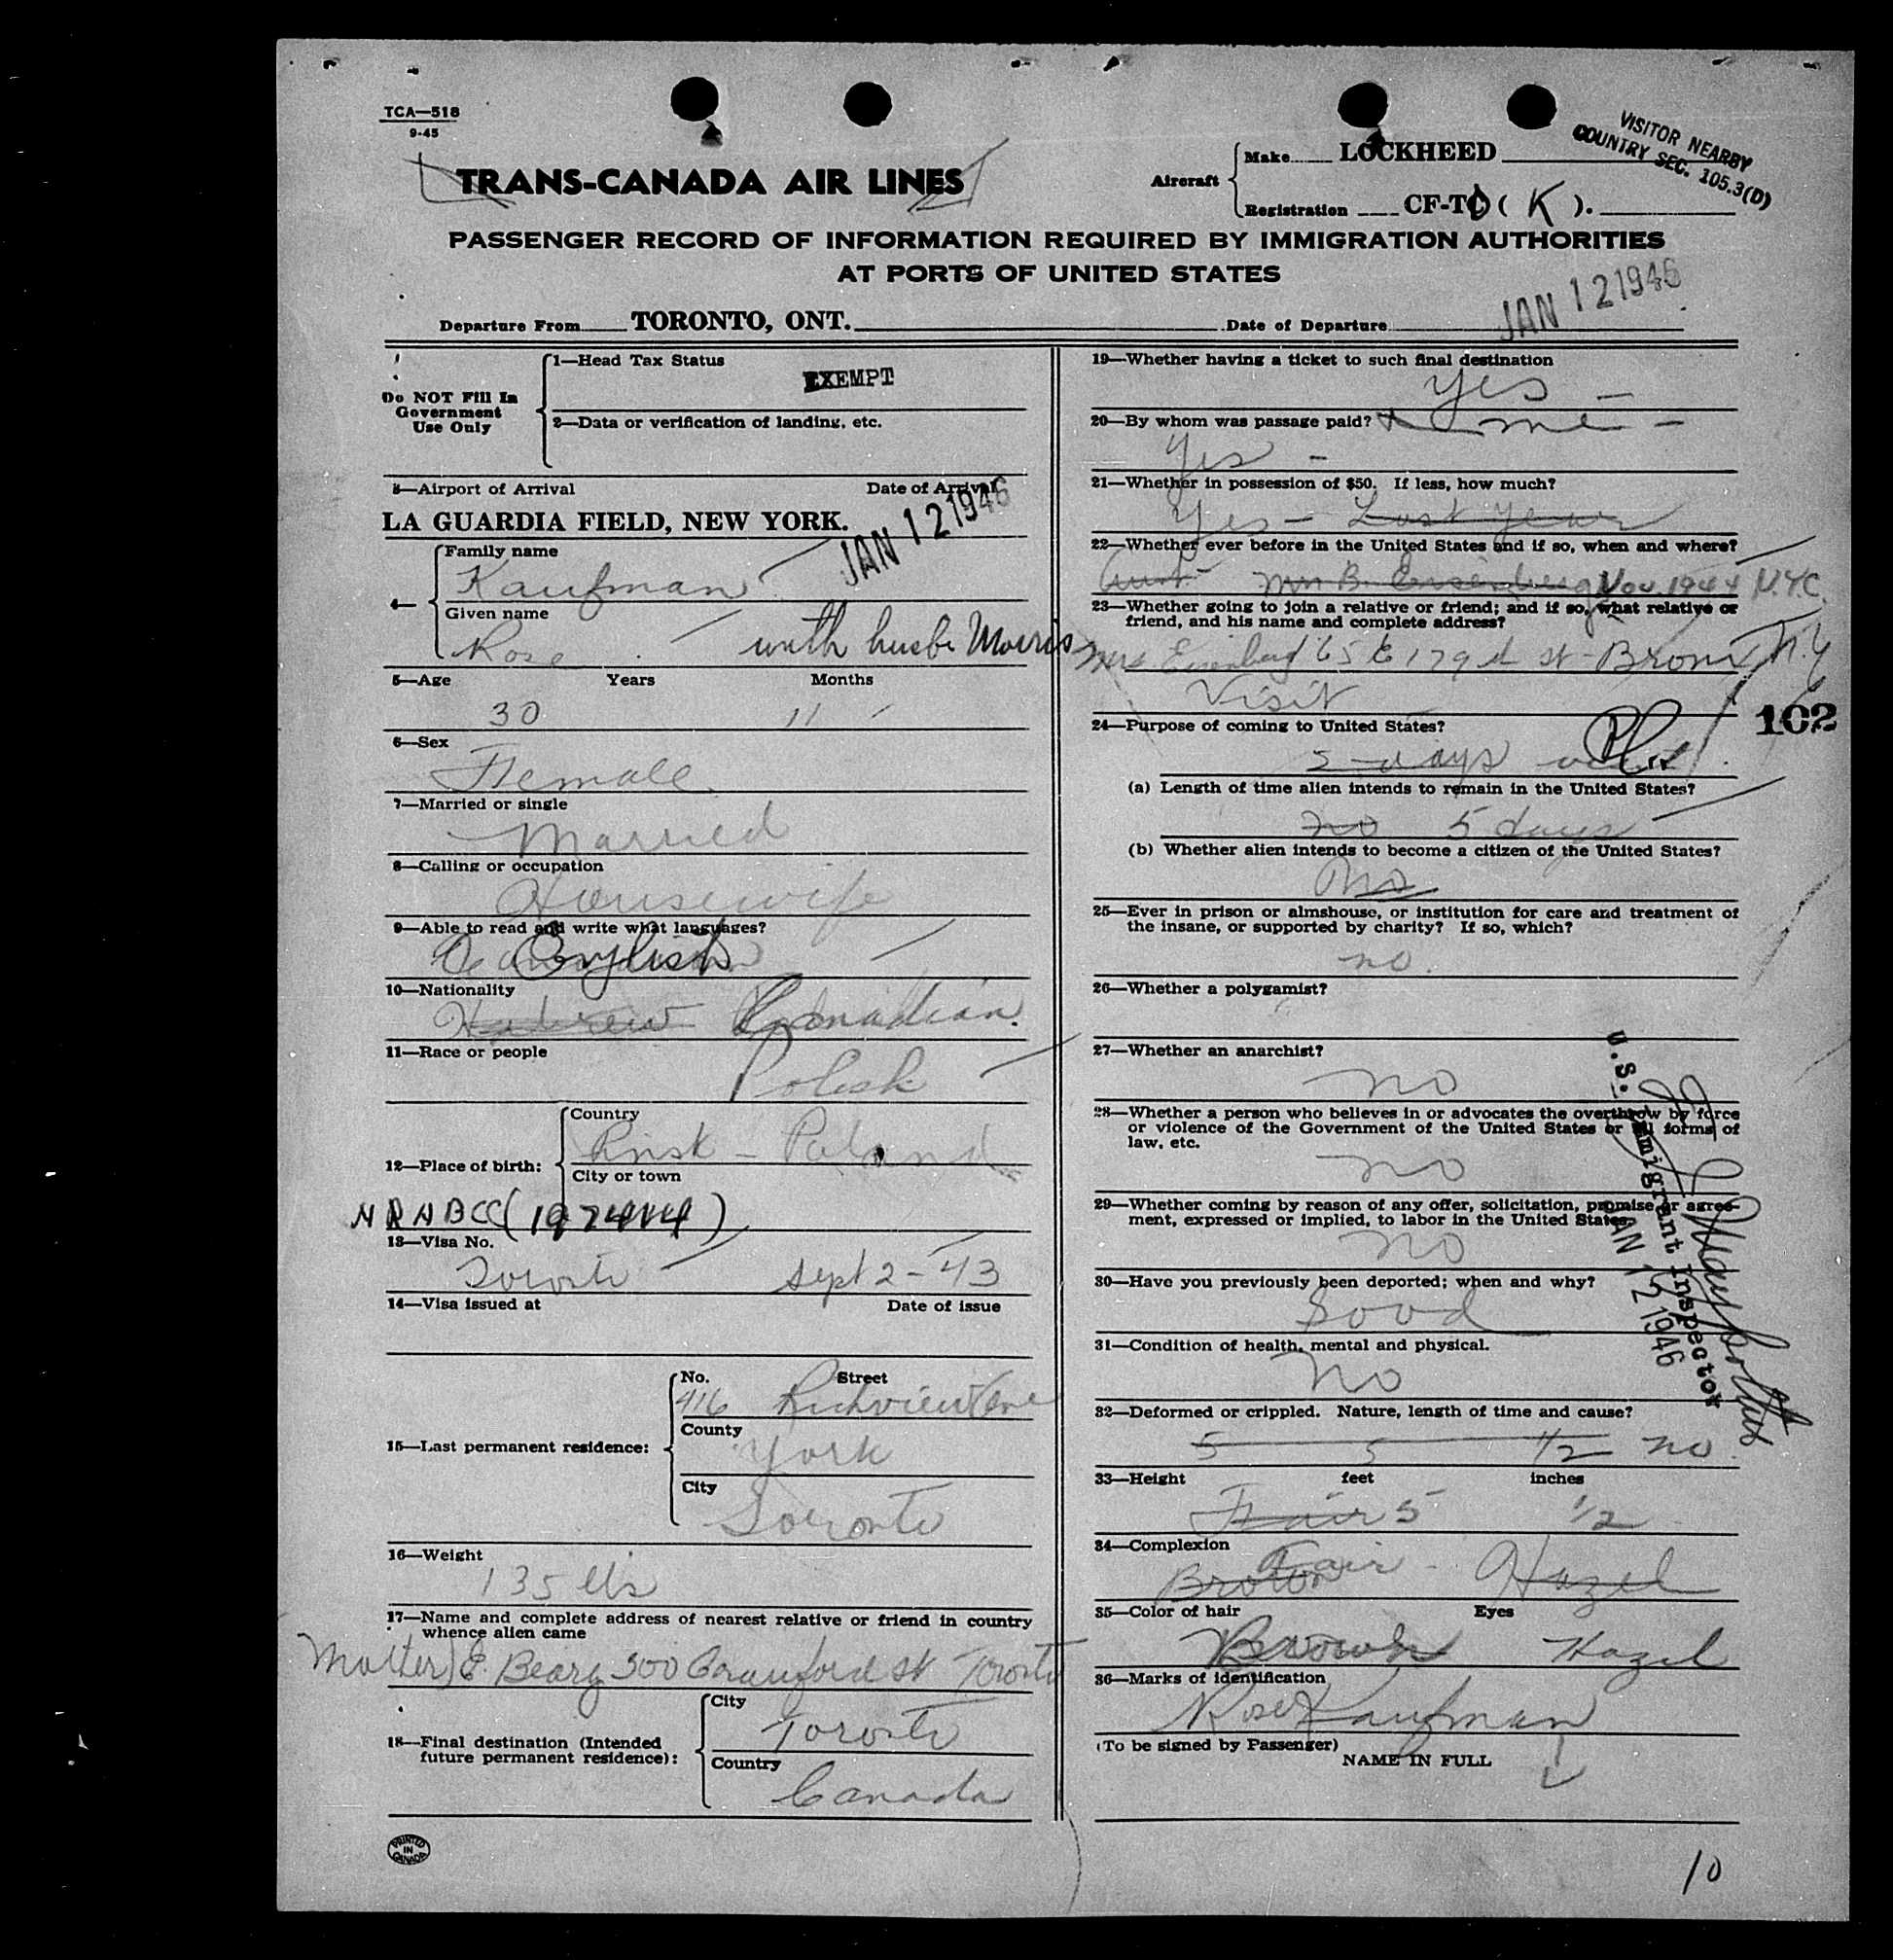 TCA—518
9-45
VISITOR NEARBY
COUNTRY SEC. 105.3(D)
TRANS-CANADA AIR LINES
Aircraft
Make LOCKHEED
Registration CF-TC ( K ).
PASSENGER RECORD OF INFORMATION REQUIRED BY IMMIGRATION AUTHORITIES
AT PORTS OF UNITED STATES
Departure From TORONTO, ONT. Date of Departure JAN 12 1946
Do NOT Fill In
Government
Use Only
1—Head Tax Status
EXEMPT
2—Data or verification of landing, etc.
3—Airport of Arrival Date of Arrival
LA GUARDIA FIELD, NEW YORK. JAN 12 1946
4—
Family name
Kaufman
Given name
Rose with husb Morris
5—Age Years Months
30 11
6—Sex
Female
7—Married or single
Married
8—Calling or occupation
Housewife
9—Able to read and write what languages?
English
10—Nationality
Hebrew Canadian
11—Race or people
Polish
12—Place of birth:
Country
Pinsk - Poland
City or town
13—Visa No.
Toronto Sept 2-43
14—Visa issued at Date of issue
15—Last permanent residence:
No. Street
416 Richview Ave
County
York
City
Toronto
16—Weight
135 lbs
17—Name and complete address of nearest relative or friend in country
whence alien came
Mother E. 300 Crawford St Toronto
18—Final destination (Intended
future permanent residence):
City
Toronto
Country
Canada
PRINTED
IN
CANADA
19—Whether having a ticket to such final destination
Yes —
20—By whom was passage paid? me —
Yes -
21—Whether in possession of $50. If less, how much?
Yes - Last year
22—Whether ever before in the United States and if so, when and where?
Aunt Mrs B. Eisenberg Nov. 1944 N.Y.C.
23—Whether going to join a relative or friend; and if so, what relative or
friend, and his name and complete address?
Mrs Eisenberg 65 E 179th St - Bronx N.Y
Visit
24—Purpose of coming to United States?
102
5 days
(a) Length of time alien intends to remain in the United States?
no 5 days
(b) Whether alien intends to become a citizen of the United States?
no
25—Ever in prison or almshouse, or institution for care and treatment of
the insane, or supported by charity? If so, which?
no.
26—Whether a polygamist?
27—Whether an anarchist?
no
28—Whether a person who believes in or advocates the overthrow by force
or violence of the Government of the United States or all forms of
law, etc.
no
29—Whether coming by reason of any offer, solicitation, promise or agree-
ment, expressed or implied, to labor in the United States
no
30—Have you previously been deported; when and why?
Good
31—Condition of health, mental and physical.
No
32—Deformed or crippled. Nature, length of time and cause?
5 5 1/2 no
33—Height feet inches
Fair 5 1/2
34—Complexion
Brown Fair - Hazel
35—Color of hair Eyes
Brown Hazel
36—Marks of identification
Rose Kaufman
(To be signed by Passenger)
NAME IN FULL
U.S. Immigrant Inspector
JAN 12 1946
10